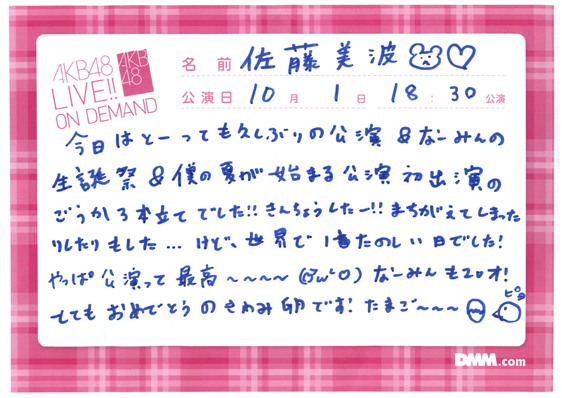 AKB48
LIVE!!
ON DEMAND
AKB
48
名前 佐藤美波
公演日 10月 1日 18:30公演
今日はとーっても久しぶりの公演&なーみんの
生誕祭&僕の夏が始まる公演初出演の
ごうか3本立てでした!!きんちょうしたー!!まちがえてしまった
りしたりもした...けど、世界で1番たのしい日でした!
やっぱ公演って最高~~~~ なーみんも20才!
とてもおめでとうのきわみ卵です!たまご~~~
ピヨ
DMM.com